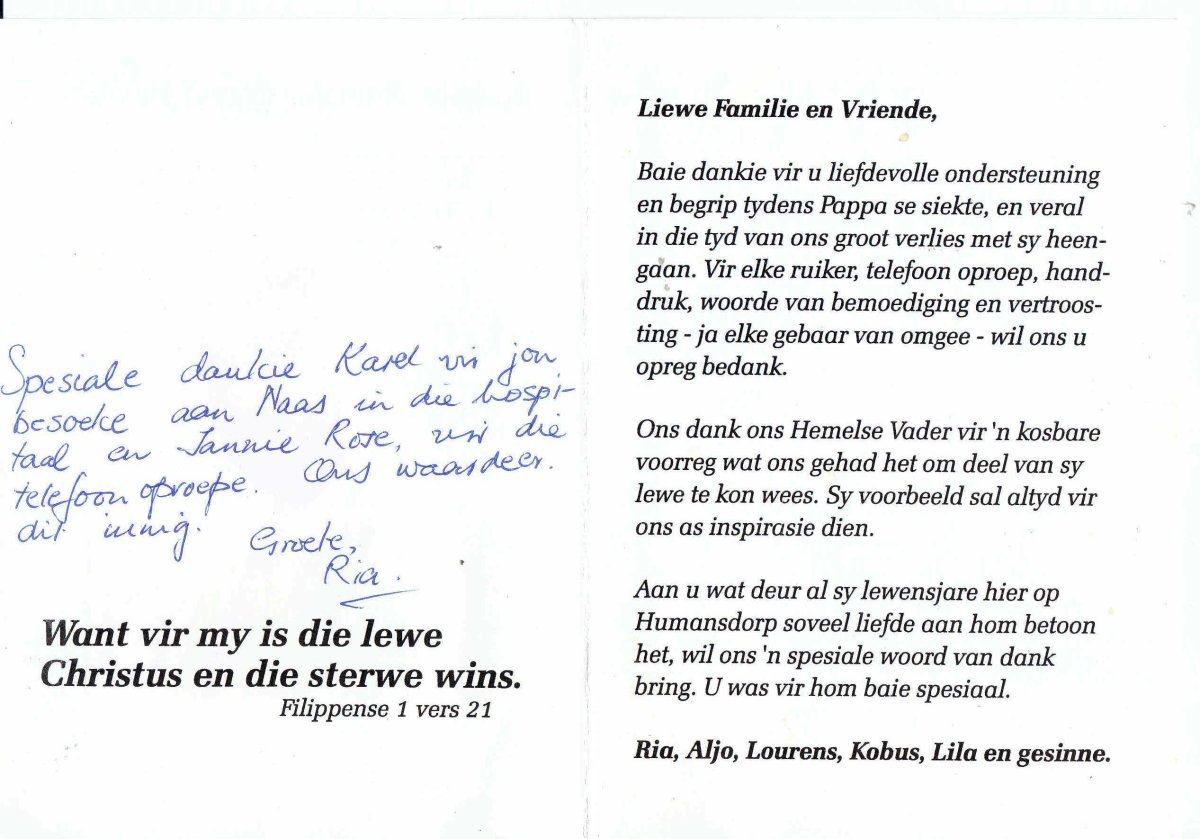 Spesiale dankie Karel vir jou
besoeke aan Naas in die hospi-
taal en Jannie Rose, vir die
telefoon oproepe. Ons waardeer.
dit innig. Groete,
Ria.
Want vir my is die lewe
Christus en die sterwe wins.
Filippense 1 vers 21
Liewe Familie en Vriende,
Baie dankie vir u liefdevolle ondersteuning
en begrip tydens Pappa se siekte, en veral
in die tyd van ons groot verlies met sy heen-
gaan. Vir elke ruiker, telefoon oproep, hand-
druk, woorde van bemoediging en vertroos-
ting - ja elke gebaar van omgee - wil ons u
opreg bedank.
Ons dank ons Hemelse Vader vir 'n kosbare
voorreg wat ons gehad het om deel van sy
lewe te kon wees. Sy voorbeeld sal altyd vir
ons as inspirasie dien.
Aan u wat deur al sy lewensjare hier op
Humansdorp soveel liefde aan hom betoon
het, wil ons 'n spesiale woord van dank
bring. U was vir hom baie spesiaal.
Ria, Aljo, Lourens, Kobus, Lila en gesinne.